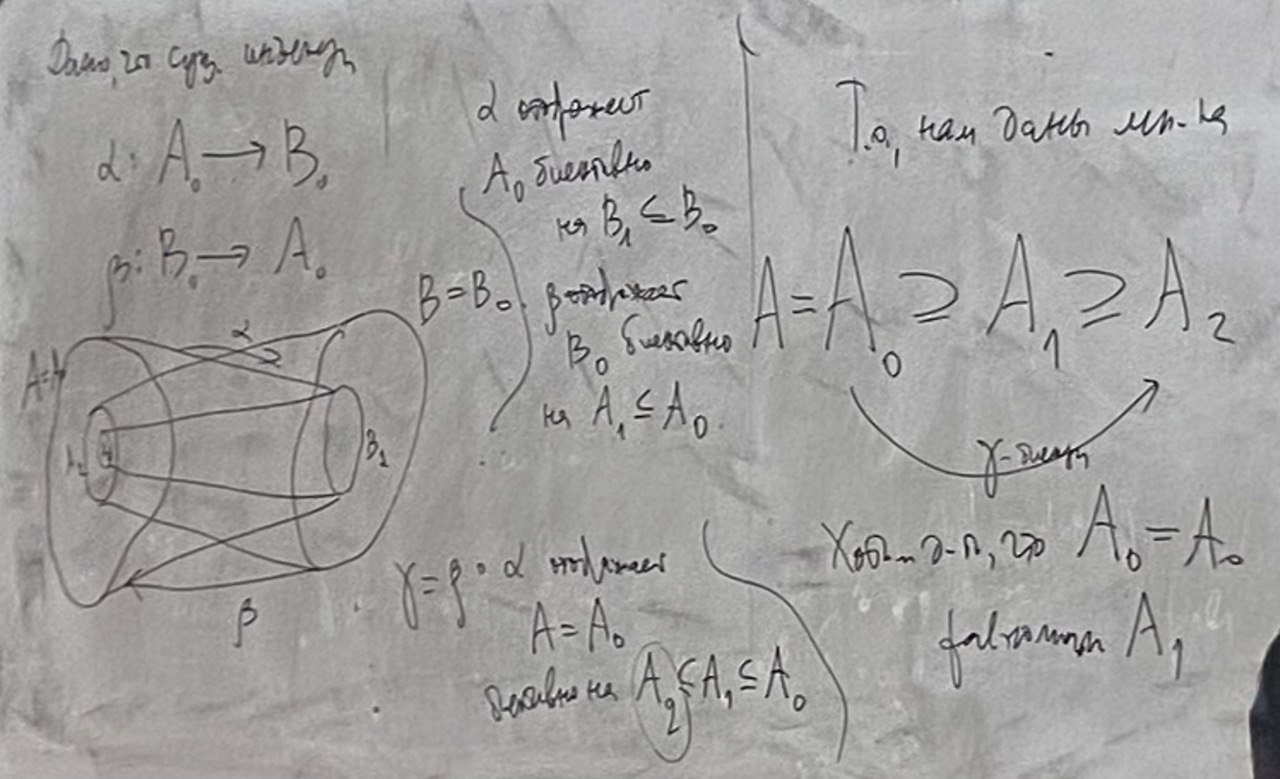 Дано, что сущ. инъекции
α: A₀ → B₀
β: B₀ → A₀
A=A
α
A₂
B₁
β
B=B₀
α отображает
A₀ биективно
на B₁ ⊆ B₀
β отображает
B₀ биективно
на A₁ ⊆ A₀
γ=β∘α отображает
A=A₀
биективно на A₂⊆A₁⊆A₀
Т.о., нам даны мн-ва
A=A₀ ⊇ A₁ ⊇ A₂
γ-биекция
Хотим д-ть, что A₀=A₀
равномощн A₁